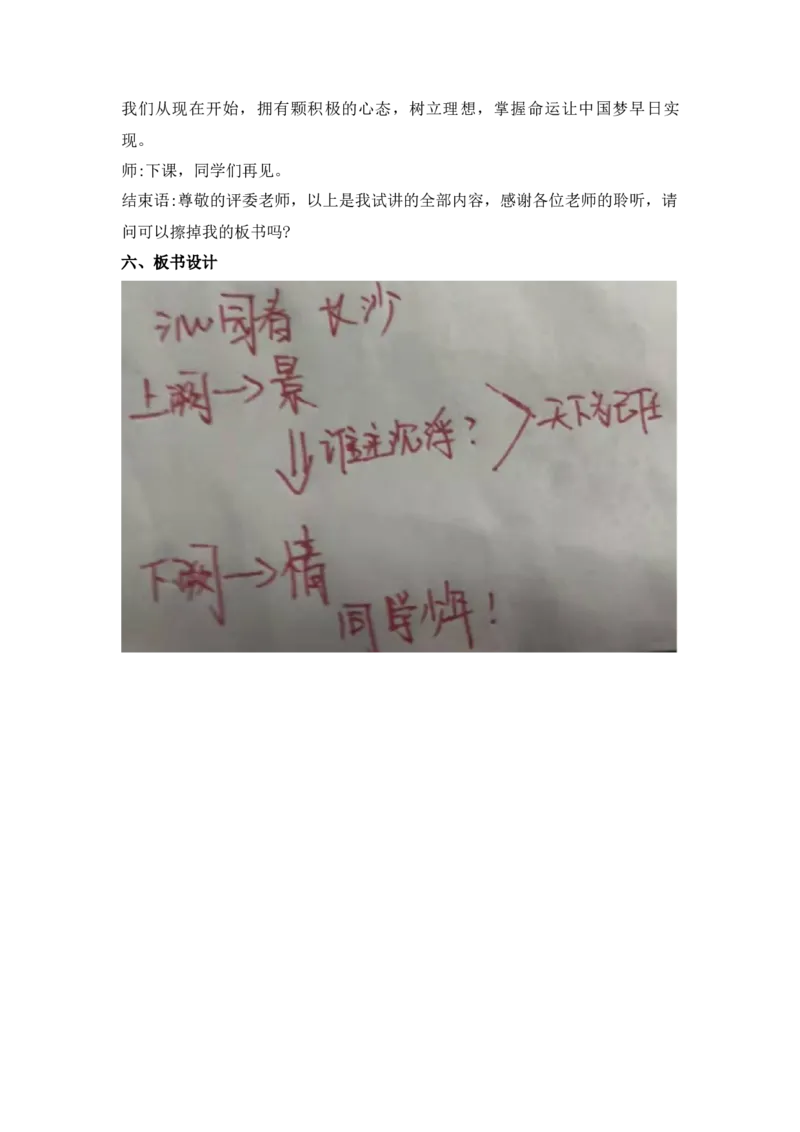 我们从现在开始，拥有颗积极的心态，树立理想，掌握命运让中国梦早日实
现。
师:下课，同学们再见。
结束语:尊敬的评委老师，以上是我试讲的全部内容，感谢各位老师的聆听，请
问可以擦掉我的板书吗?
六、板书设计
沁园春 长沙
上阕→景
谁主沉浮？
天下为己任
下阕→情
同学少年！